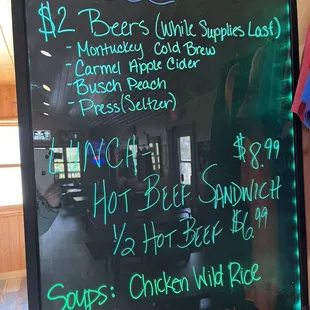 $2 Beers (While Supplies Last)
- Montuckey Cold Brew
- Carmel Apple Cider
- Busch Peach
- Press (Seltzer)
LUNCH - $8.99
HOT BEEF SANDWICH
1/2 HOT BEEF $6.99
Soups: Chicken Wild Rice